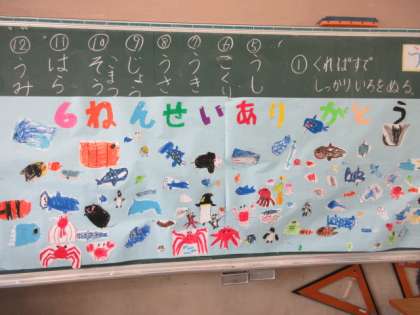 ① くればすで
しっかりいろをぬる。
⑤ うし
⑥ こくり
⑦ うき
⑧ うさ
⑨ じょう
⑩ ぞう
⑪ はら
⑫ うみ
6ねんせいありがとう